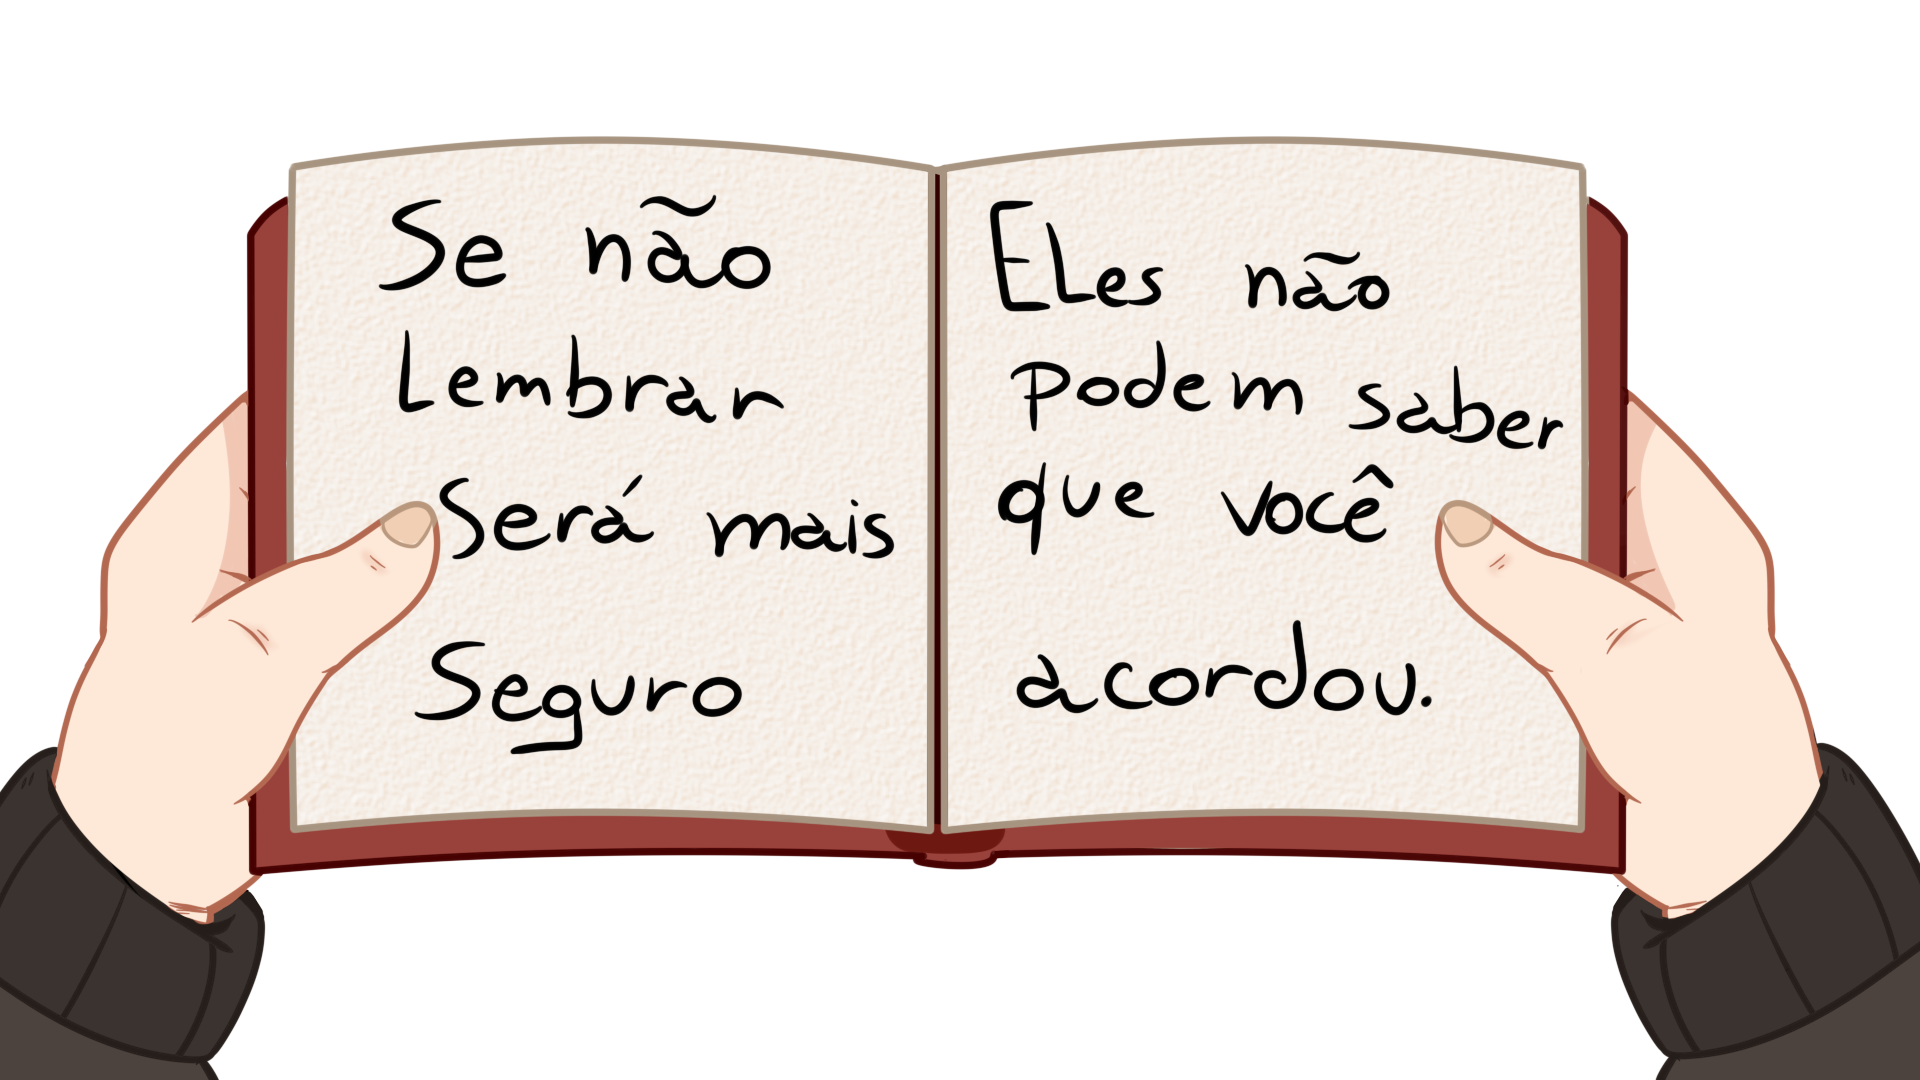 Se não
Lembrar
Será mais
Seguro
ELes não
podem saber
que você
acordou.